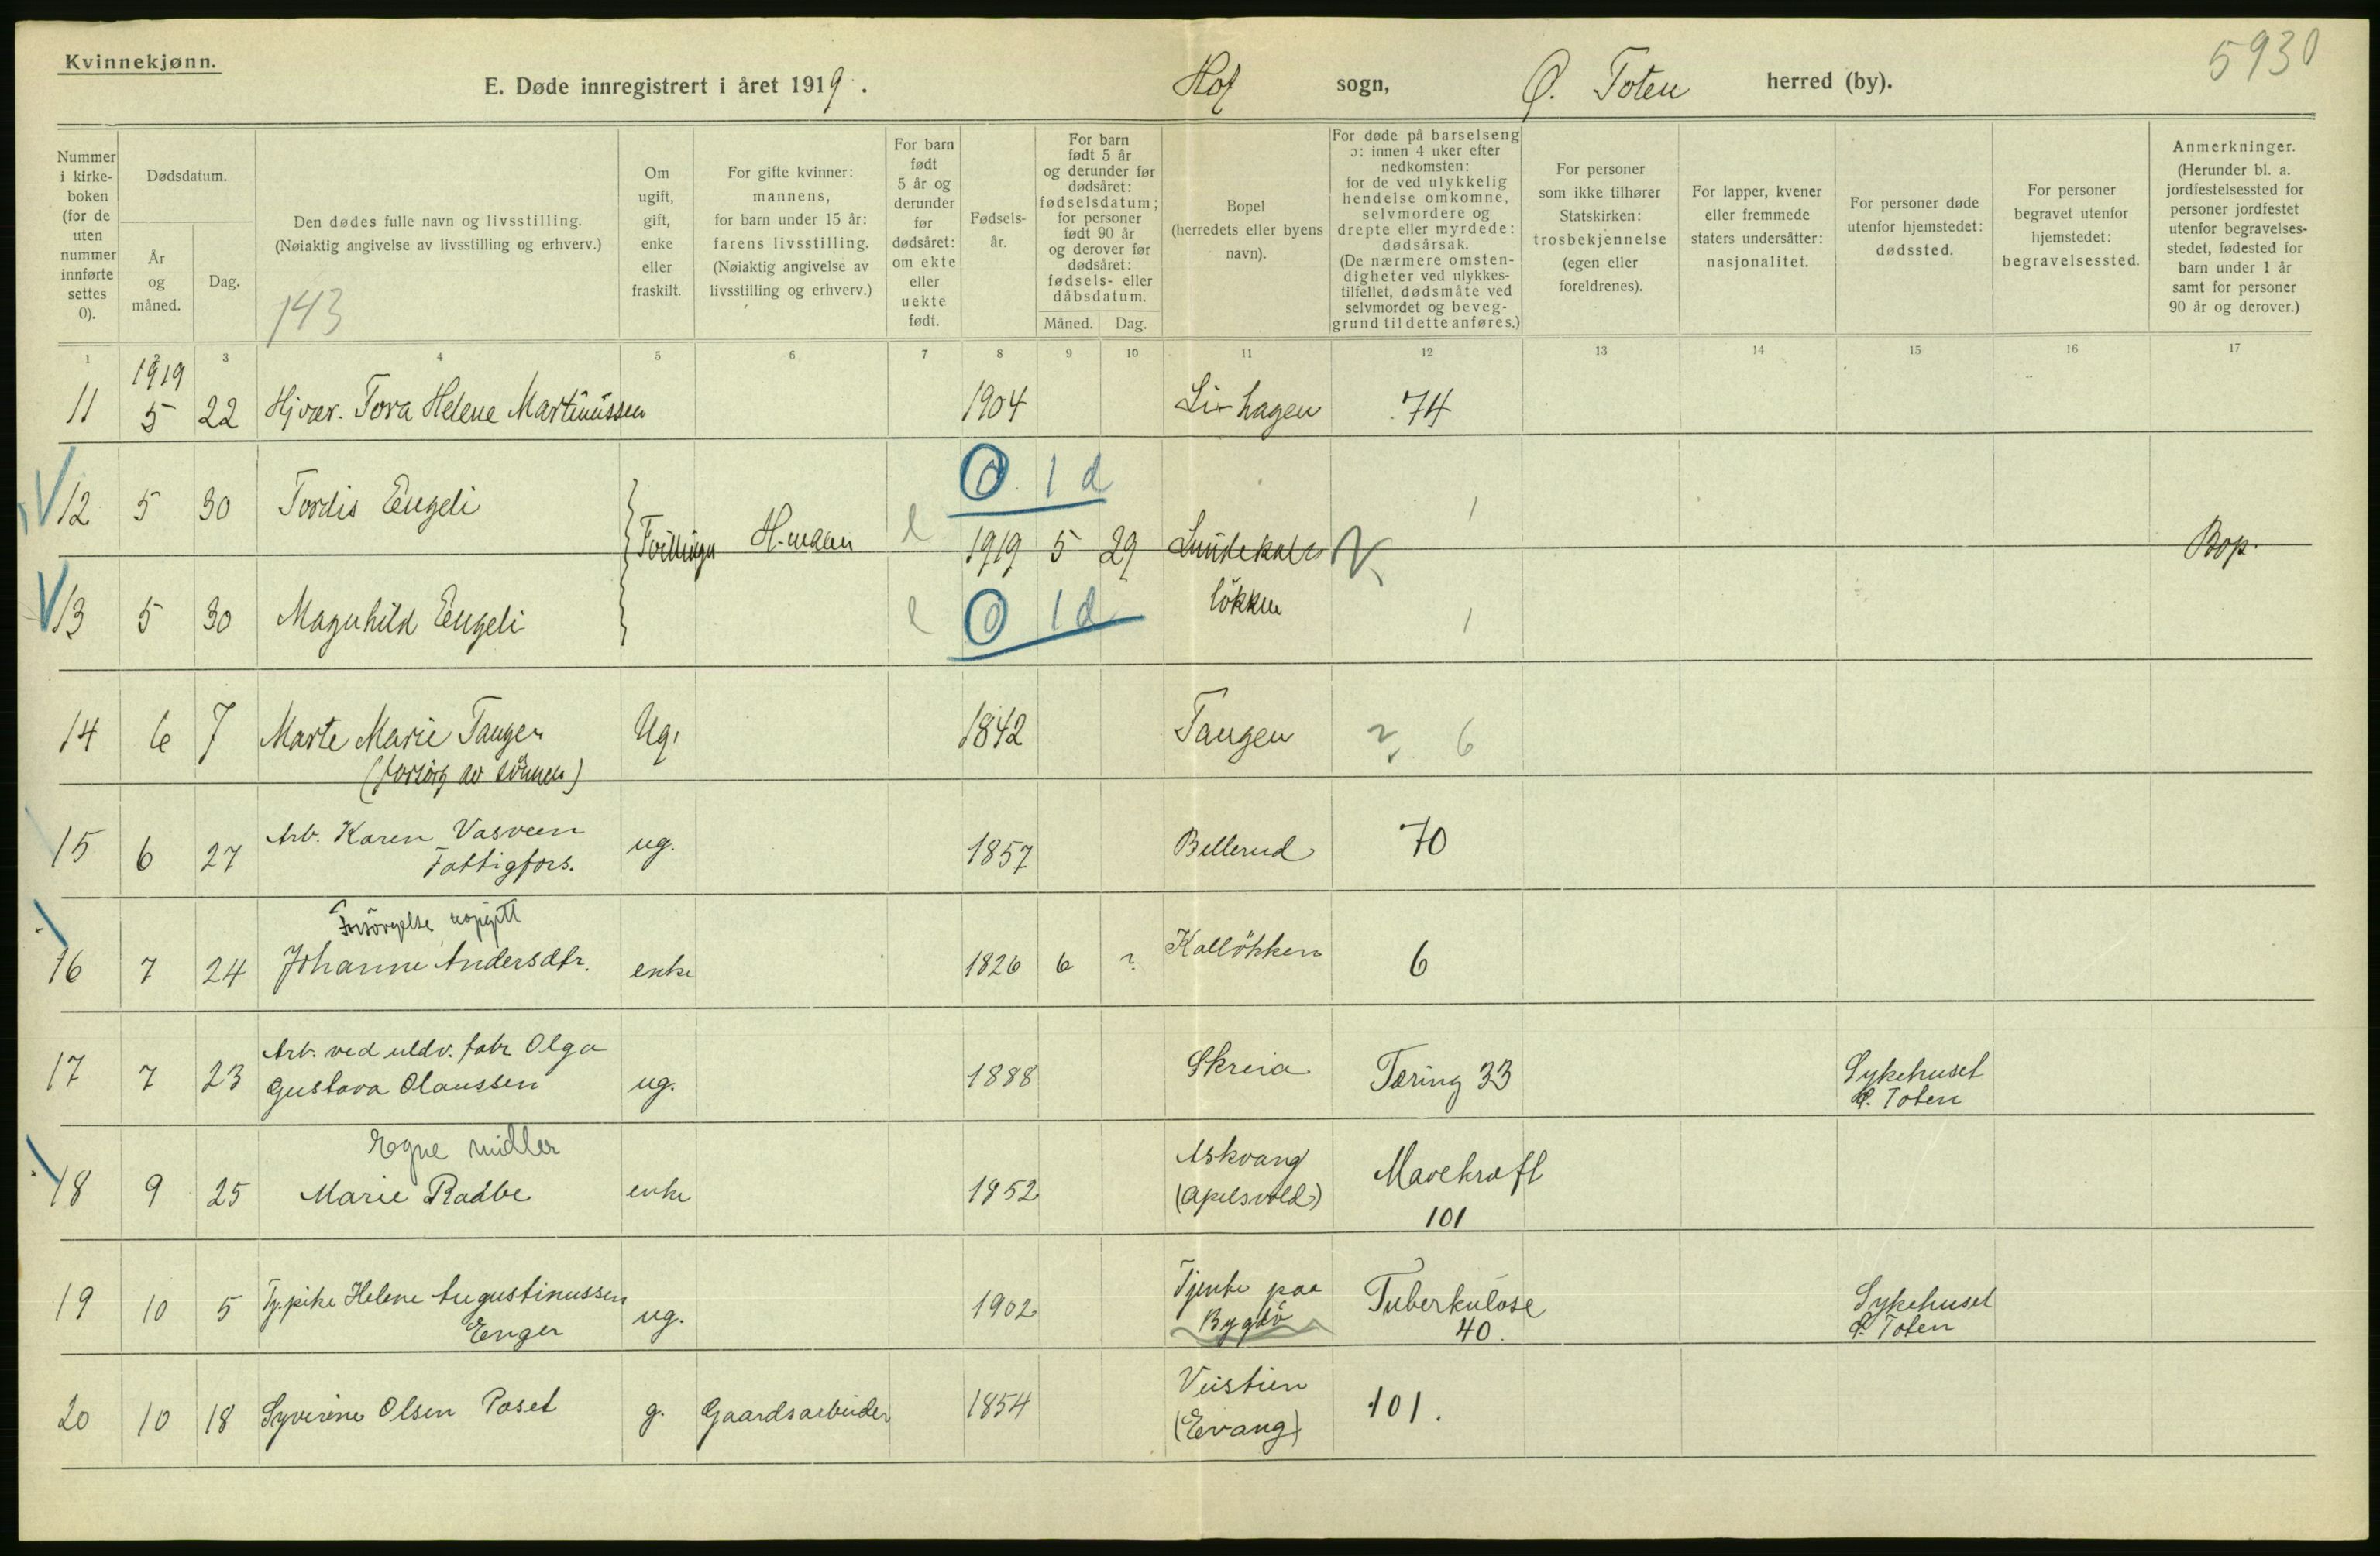 Kvinnekjønn.
5930
E. Døde innregistrert i året 1919. Hof sogn, Ø. Toten herred (by).
Nummer i kirke- boken (for de uten nummer innførte settes 0).
Dødsdatum.
År og måned.
Dag.
Den dødes fulle navn og livsstilling.
(Nøiaktig angivelse av livsstilling og erhverv.)
143
Om ugift, gift, enke eller fraskilt.
For gifte kvinner: mannens, for barn under 15 år: farens livsstilling. (Nøiaktig angivelse av livsstilling og erhverv.)
For barn født 5 år og derunder før dødsåret: om ekte eller uekte født.
Fødsels- år.
For barn født 5 år og derunder før dødsåret: fødselsdatum; for personer født 90 år og derover før dødsåret: fødsels- eller dåbsdatum.
Måned. Dag.
Bopel (herredets eller byens navn).
For døde på barselseng ɔ: innen 4 uker efter nedkomsten: for de ved ulykkelig hendelse omkomne, selvmordere og drepte eller myrdede: dødsårsak. (De nærmere omsten- digheter ved ulykkes- tilfellet, dødsmåte ved selvmordet og beveg- grund til dette anføres.)
For personer som ikke tilhører Statskirken: trosbekjennelse (egen eller foreldrenes).
For lapper, kvener eller fremmede staters undersåtter: nasjonalitet.
For personer døde utenfor hjemstedet: dødssted.
For personer begravet utenfor hjemstedet: begravelsessted.
Anmerkninger. (Herunder bl. a. jordfestelsessted for personer jordfestet utenfor begravelses- stedet, fødested for barn under 1 år samt for personer 90 år og derover.)
1 2 3 4 5 6 7 8 9 10 11 12 13 14 15 16 17
1919
11 5 22 Hjvær. Tora Helene Martinussen 1904 Li-hagen 74
0 1 d
12 5 30 Tordis Engeli 1
Tvillinger H-mann e 1919 5 29 Bop.
13 5 30 Magnhild Engeli e 0 1 d løkken 1
14 6 7 Marte Marie Tangen Ug. 1842 Tangen ? 6
(forsørg av sønnen)
15 6 27 Arb. Karen Vasveen ug. 1857 Bellerud 70
Fattigfors.
Forsørgelse uopgitt
16 7 24 Johanne Andersdtr. enke 1826 6 ? Kalløkken 6
17 7 23 Arb. ved uldv. fabr Olga
Gustava Olaussen ug. 1888 Skreia Tæring 33 Sykehuset
Ø. Toten
Egne midler
18 9 25 Marie Radbe enke 1852 Askvang
(Apelsvold) Mavekræft
101
19 10 5 Tj.pike Helene Augustinussen
Enger ug. 1902 Tjente paa
Bygdø Tuberkulose
40. Sykehuset
Ø. Toten
20 10 18 Syverine Olsen Poset g. Gaardsarbeider 1854
(Evang) 101.